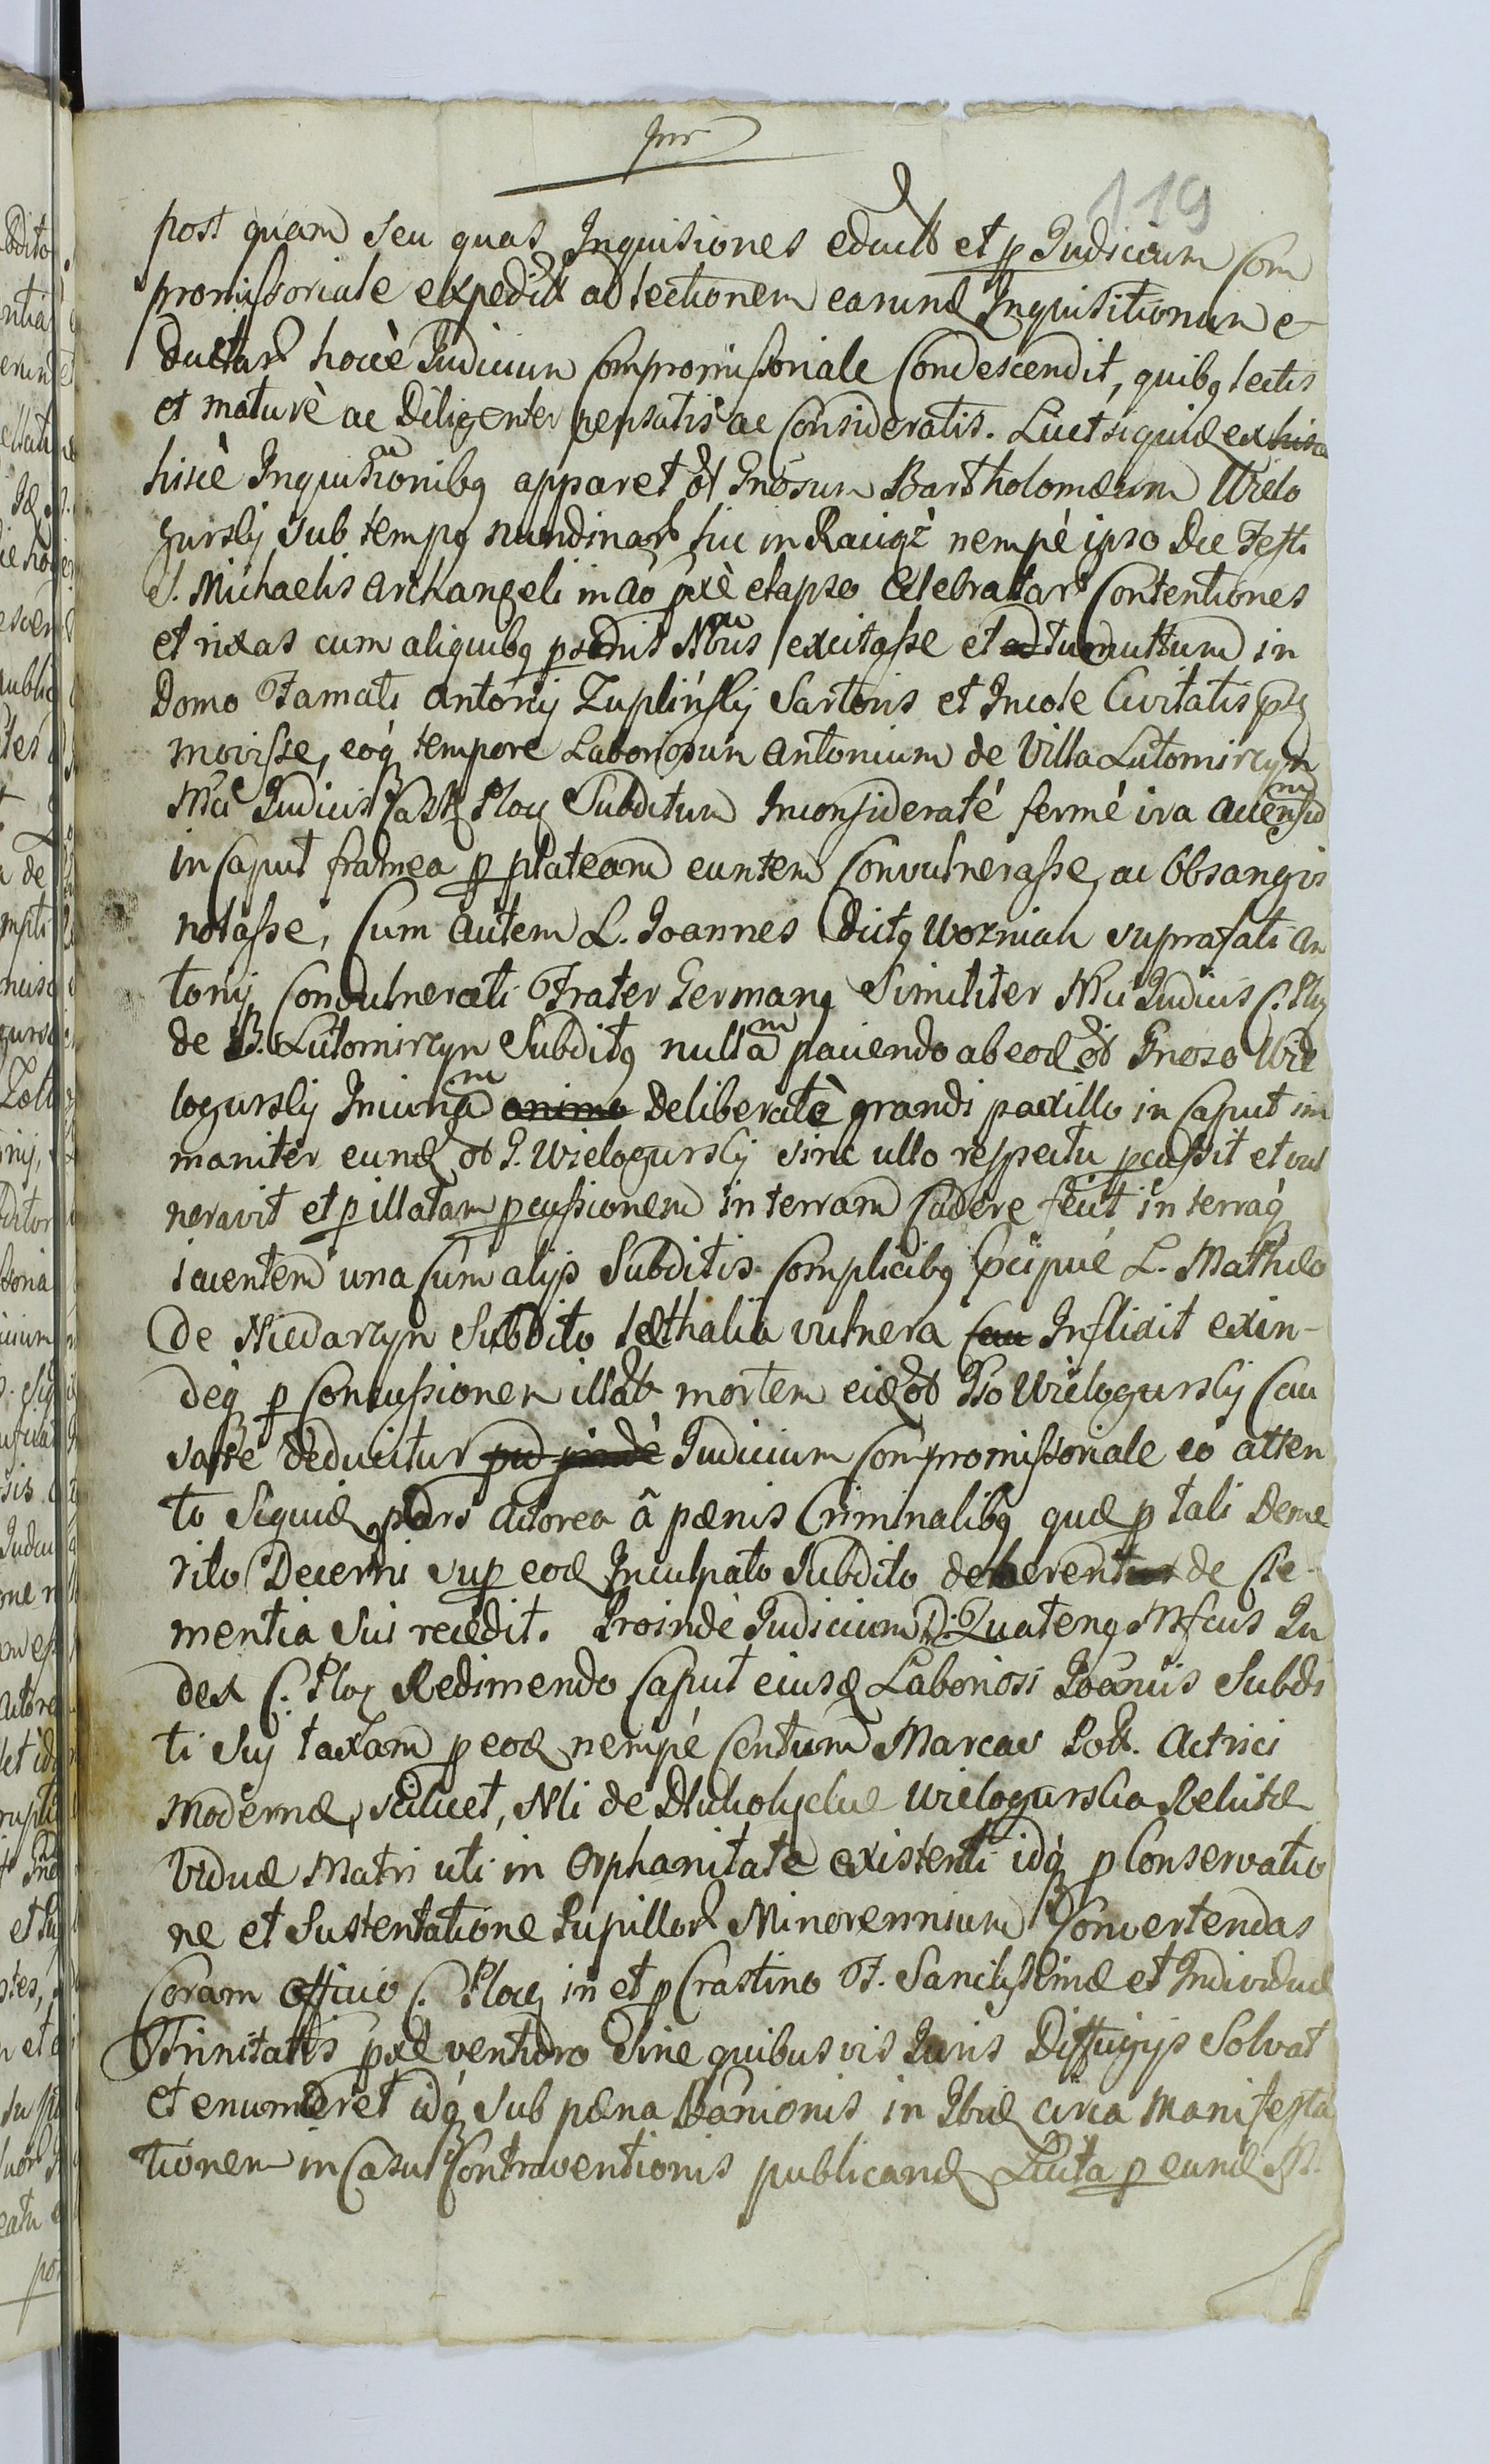 119
post quam seu quas Inquisiones educt et p Judicium Com
promissoriale expedit ad lectionem earund Inquisitionum e-
ductar hocce Judicium Compromissoriale Condescendit, quibq lectis
et maturè ac Diligenter pensatis ac Consideratis. Licet siquid ex
hisce Inquisitionibq apparet ol Gnosum Bartholomæum Wielo
gurslij sub tempq nundinar hic in Raciąż nempè ipso Die Festi
S. Michaelis Archangeli in Ao pxè elapso Celebratar Contentiones
et rixas cum aliquibq psonis Nbus excitasse et tumultum in
Domo Famati Antonij Zuplińslij Sartoris et Incole Civitatis
movisse, eoq tempore Laboriosum Antonium de Villa Lutomirzyn
Mci Judicis Castr Ploc Subditum Inconsideraté fermé ira accensum
in Caput framea p plateam euntem Convulnerasse, ac Obsangvi
notasse, Cum autem L. Joannes Dictq Wozniak suprafati An
tonij Convulnerati Frater Germanq Similiter Mci Judicis C. Ploc
de B. Lutomirzyn Subditq nullam paciendo ab eod ol Gnoso Wie
logurslij Iniuriam animo Deliberatè grandi paxillo in Caput im
maniter eund ol G. Wielogurslij sine ullo respectu pcussit et vul
neravit et p illatam pcussionem in terram Cadere fecit in terraq
iacentem una Cum alijs Subditis Complicibq pcipué L. Mathia
de Niedarzyn Subdito læthalia vulnera Inflixit exin-
deq p Concussionem illat mortem eid ol Gso Wielogurslij Cau
sasse deducitur Judicium Compromissoriale eo atten
to siquid pars Actorea â pænis Criminalibq quæ p tali Deme
rito Decerni sup eod Inculpato Subdito deberent de Cle-
mentia sui recedit. Proindè Judicium D. Quatenq Mfcus Ju
dex C. Ploc Redimendo Caput eiusd Laboriosi Joannis Subdi
ti Suj taxam p eod nempé Centum Marcas Pol. Actrici
Modernæ, scilicet, Nli de Dluholęckie Wielogurska Relictæ
Viduæ Matri uti in Orphanitate existenti idq p Conservatio
ne et Sustentatione Pupillor Minorennium Convertendas
Coram Officio C. Ploc in et p Crastino F. Sanctissimæ et Individuæ
Trinitatis pxè venturo Sine quibusvis Juris Diffugijs Solvat
et enumeret idq sub pæna Banionis in Jbid circa Manifesta
tionem in Casu Contraventionis publicand Licita p eund M.